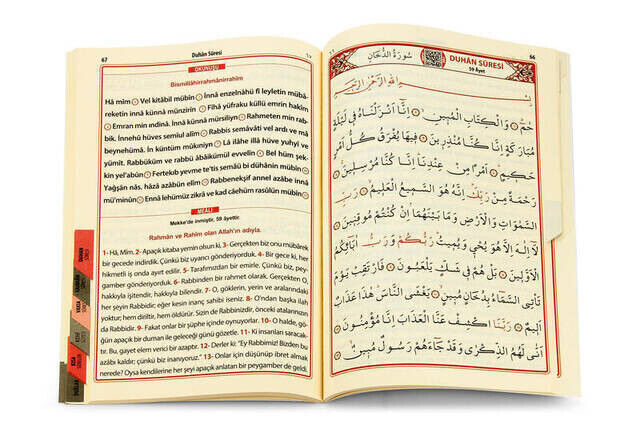 67 Duhân Sûresi ٦٧
OKUNUŞU
Bismillâhirrahmânirrahîm
Hâ mîm Vel kitâbil mübîn İnnâ enzelnâhü fî leyletin mübâ-
reketin innâ künnâ münzirîn Fîhâ yüfraku küllü emrin hakîm
Emran min ındinâ. İnnâ künnâ mürsiliyn Rahmeten min rab-
bik. İnnehû hüves semîul alîm Rabbis semâvâti vel ardı ve mâ
beynehümâ. İn küntüm mûkıniyn Lâ ilâhe illâ hüve yuhyî ve
yümît. Rabbüküm ve rabbü âbâikümül evvelîn Bel hüm şek-
kin yel'abûn Fertekıb yevme te'tîs semâü bi dühânin mübîn
Yağşân nâs, hâzâ azâbün elîm Rabbenekşif annel azâbe innâ
mü'minûn Ennâ lehümüz zikrâ ve kad câehüm rasûlün mübîn
MEÂLİ
Mekke'de inmiştir. 59 âyettir.
Rahmân ve Rahîm olan Allah'ın adıyla.
1- Hâ, Mîm. 2- Apaçık kitaba yemin olsun ki, 3- Gerçekten biz onu mübârek
bir gecede indirdik. Çünkü biz uyarıcı gönderiyorduk. 4- Bir gece ki, her
hikmetli iş onda ayırt edilir. 5- Tarafımızdan bir emirle. Çünkü biz, pey-
gamber gönderiyorduk. 6- Rabbinden bir rahmet olarak. Gerçekten O,
hakkıyla işitendir, hakkıyla bilendir. 7- O, göklerin, yerin ve aralarındaki
her şeyin Rabbidir; eğer kesin inanç sahibi iseniz. 8- O'ndan başka ilah
yoktur; hem diriltir, hem öldürür. Sizin de Rabbinizdir, önceki atalarınızın
da Rabbidir. 9- Fakat onlar bir şüphe içinde oynuyorlar. 10- O halde, gö-
ğün apaçık bir duman ile geleceği günü gözetle. 11- Ki insanları saracak-
tır. Bu, gayet elem verici bir azaptır. 12- Derler ki: "Ey Rabbimiz! Bizden bu
azâbı kaldır; çünkü biz inanıyoruz." 13- Onlar için düşünüp ibret almak
nerede? Oysa kendilerine her şeyi apaçık anlatan bir peygamber de geldi.
٦٦ 66
سُورَةُ الدُّخَانِ DUHÂN SÛRESİ
59 Âyet
بِسْمِ اللّٰهِ الرَّحْمٰنِ الرَّحِيمِ
حٰمٓ وَالْكِتَابِ الْمُبِينِ اِنَّٓا اَنْزَلْنَاهُ فِي لَيْلَةٍ
مُبَارَكَةٍ اِنَّا كُنَّا مُنْذِرِينَ فِيهَا يُفْرَقُ كُلُّ اَمْرٍ
حَكِيمٍ اَمْرًا مِنْ عِنْدِنَا اِنَّا كُنَّا مُرْسِلِينَ
رَحْمَةً مِنْ رَبِّكَ اِنَّهُ هُوَ السَّمِيعُ الْعَلِيمُ رَبِّ
السَّمٰوَاتِ وَالْاَرْضِ وَمَا بَيْنَهُمَا اِنْ كُنْتُمْ مُوقِنِينَ
لَٓا اِلٰهَ اِلَّا هُوَ يُحْيِي وَيُمِيتُ رَبُّكُمْ وَرَبُّ اٰبَٓائِكُمُ
الْاَوَّلِينَ بَلْ هُمْ فِي شَكٍّ يَلْعَبُونَ فَارْتَقِبْ يَوْمَ
تَأْتِي السَّمَٓاءُ بِدُخَانٍ مُبِينٍ يَغْشَى النَّاسَ هٰذَا عَذَابٌ
اَلِيمٌ رَبَّنَا اكْشِفْ عَنَّا الْعَذَابَ اِنَّا مُؤْمِنُونَ
اَنّٰى لَهُمُ الذِّكْرٰى وَقَدْ جَٓاءَهُمْ رَسُولٌ مُبِينٌ